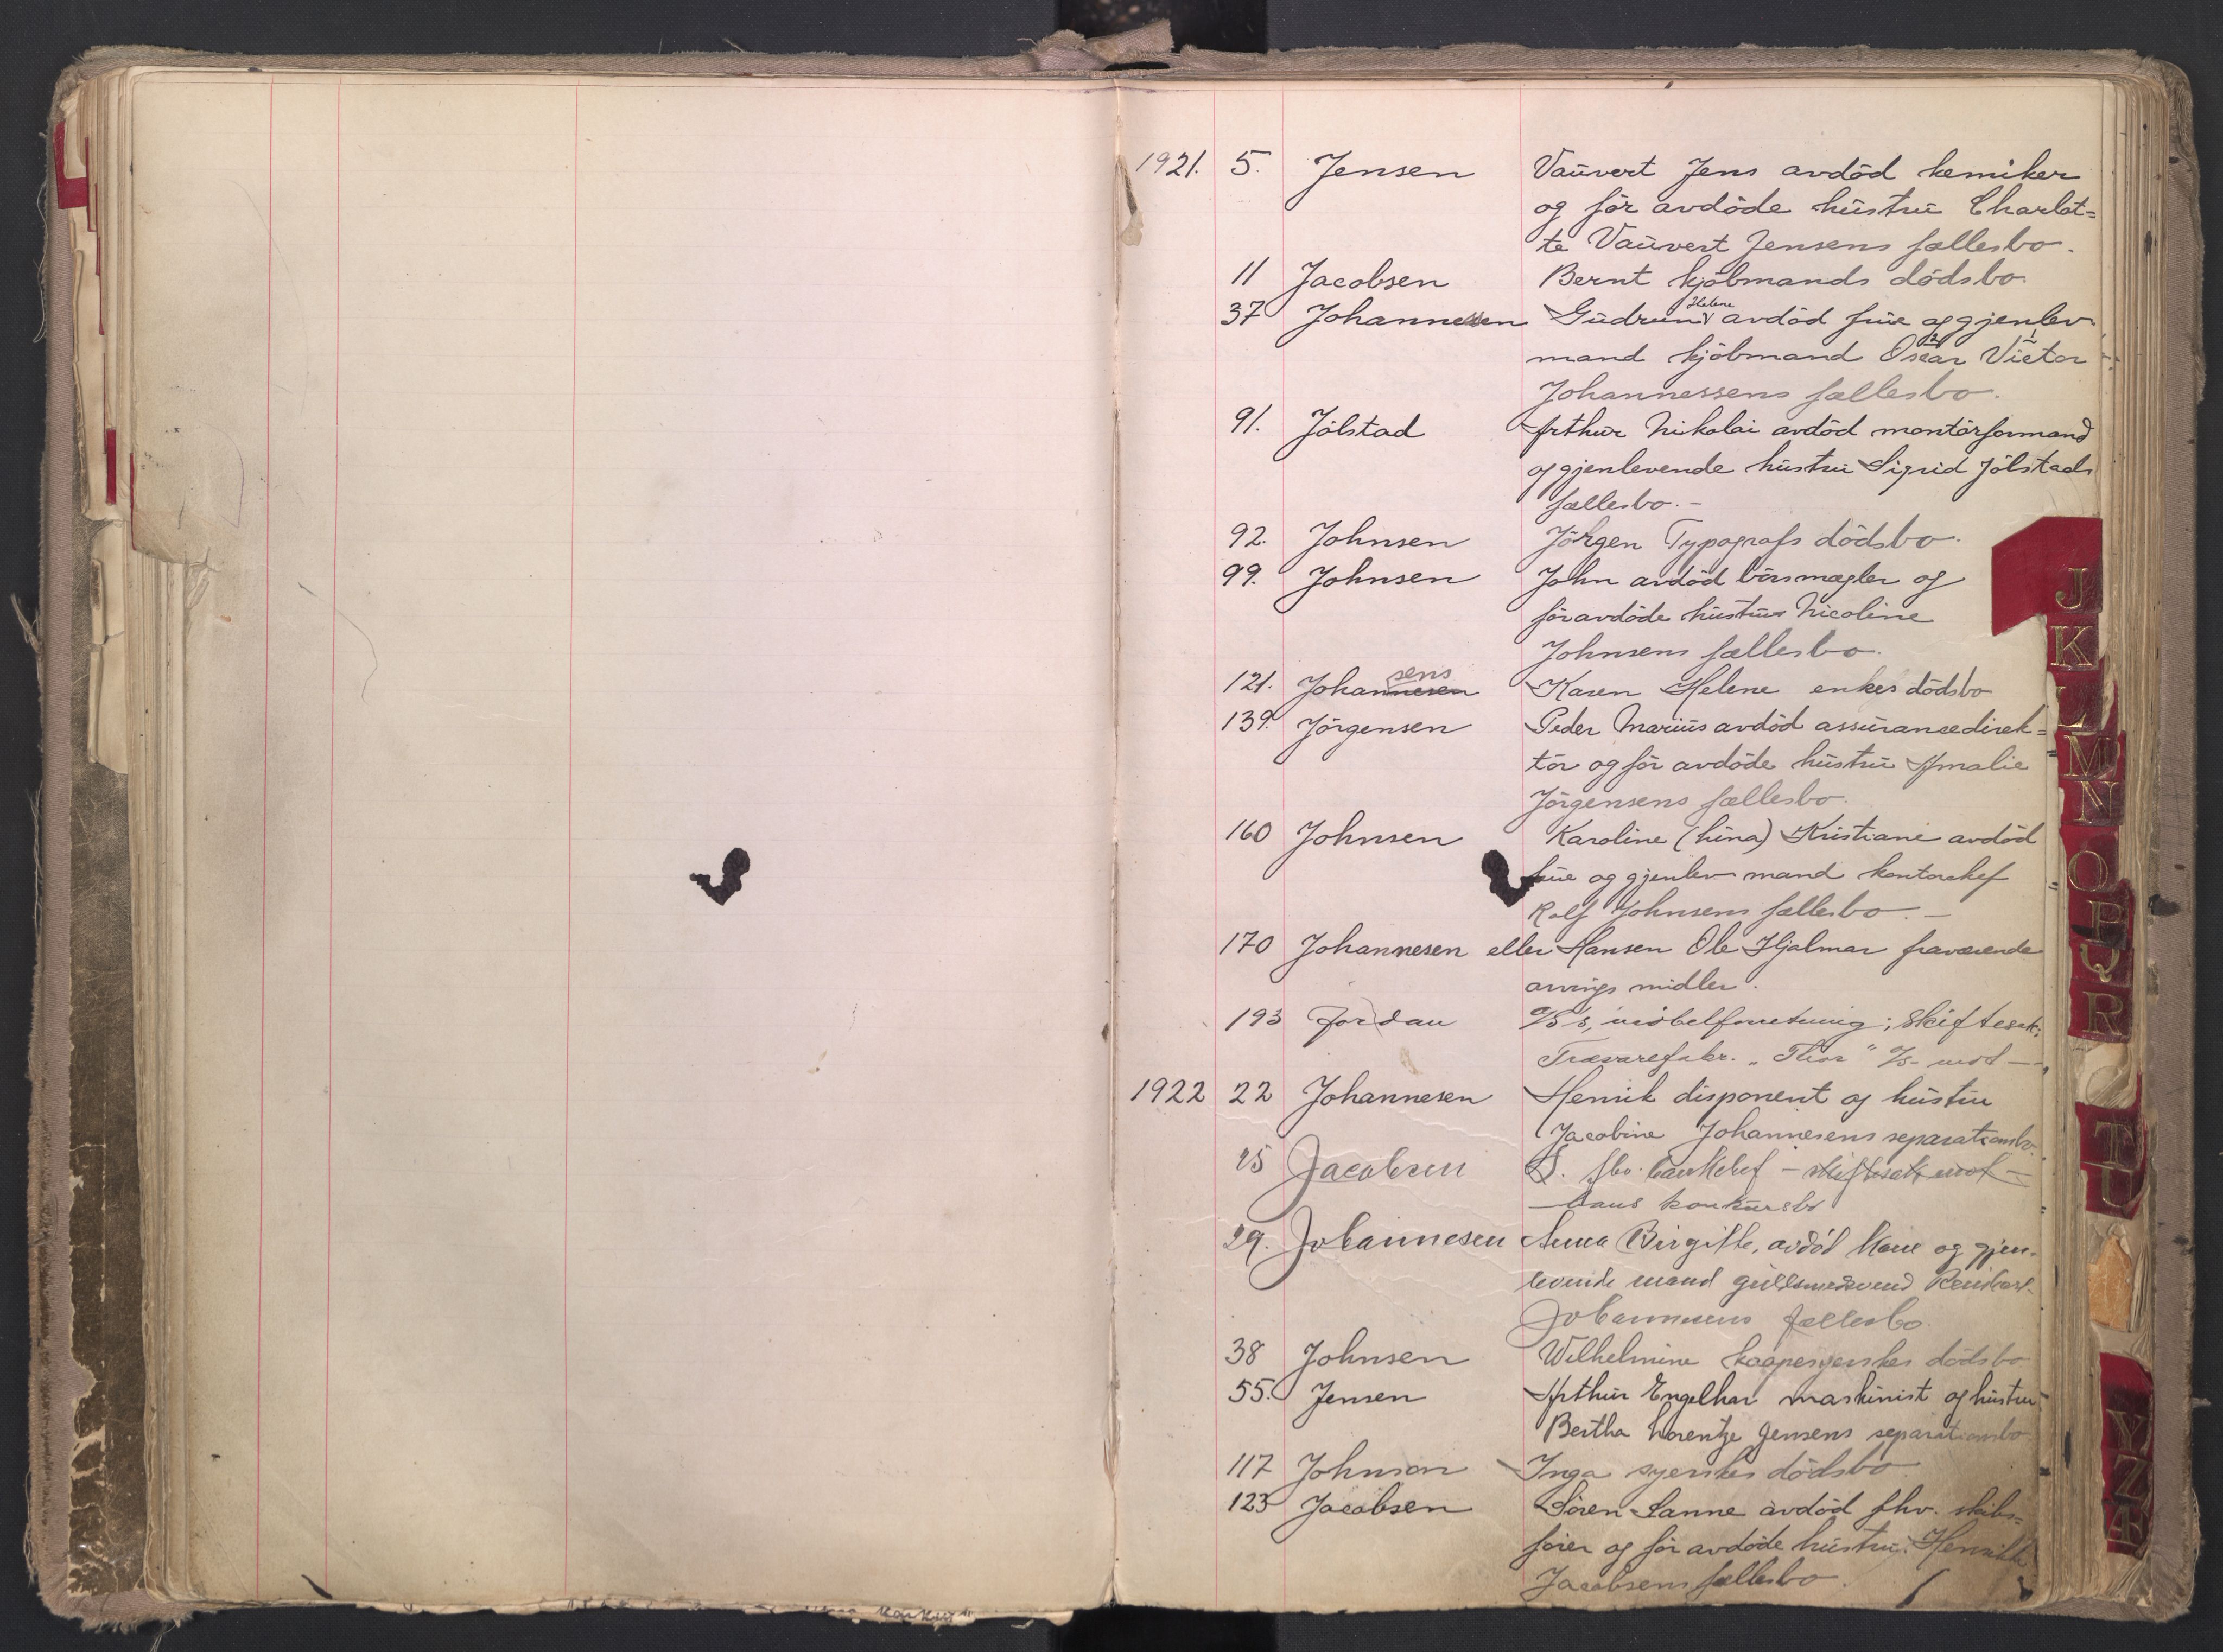 1921. 5. Jensen Vauvert Jens avdöd kemiker
og för avdöde hustru Charlot=
te Vauvert Jensens fællesbo.
11 Jacobsen Bernt kjöbmands dödsbo.
37 Johannessen Gudrun Helene avdöd frue og gjenlev
mand kjöbmand Oscar Victor
Johannessens fællesbo.
91. Jölstad Arthur Nikolai avdöd montörformand
og gjenlevende hustru Sigrid Jölstads
fællesbo.-
92. Johnsen Jörgen Typografs dödsbo.
99. Johnsen John avdöd börsmægler og
för avdöde hustrus Nicoline
Johnsens fællesbo.
121. Johannesen sens Karen Helene enkes dödsbo
139. Jörgensen Peder Marius avdöd assurancedirek=
tör og för avdöde hustru Amalie
Jörgensens fællesbo.
160 Johnsen Karoline (Lina) Kristiane avdöd
frue og gjenlev mand kontorchef
Rolf Johnsens fællesbo.-
170 Johannesen eller Hansen Ole Hjalmar fraværende
arvings midler.
193 Jordan A/S's, möbelforretning; skiftesak:
Trævarefabr. "Thor" A/S- mot -
1922 22 Johannesen Henrik disponent og hustru
Jacobine Johannesens separationsbo.
25 Jacobsen S. fhv. bankchef - skiftesak mot -
hans konkursbo
29. Johannesen Anna Birgitte, avdöd kone og gjen-
levende mand guldsmedsvend
Johannesens fællesbo.
38 Johnsen Wilhelmine kaapesyerskes dödsbo
55. Jensen Arthur Engelhar maskinist og hustru
Bertha Lorentze Jensens separationsbo
117 Johnson Inga syerskes dödsbo
123 Jacobsen Sören Sanne avdöd fhv. skibs=
förer og för avdöde hustru Henrikke
Jacobsens fællesbo.
J
K
L
M
N
O
P
Q
R
T
U
Y
Z
Æ